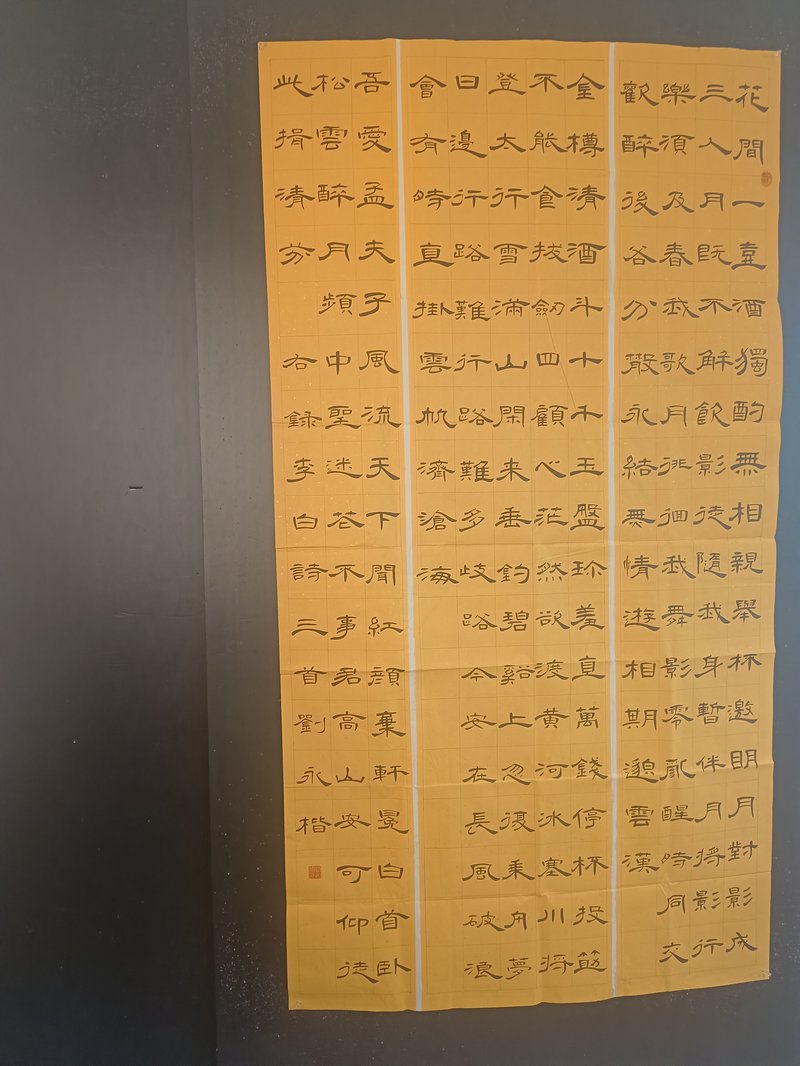 花間一壺酒獨酌無相親舉杯邀眀月對影成
三人月既不解飲影徒隨我身暫伴月將影行
樂須及春我歌月徘徊我舞影零亂醒時同交
歡醉後各分散永結無情遊相期邈雲漢
金樽清酒斗十千玉盤珎羞直萬錢停杯投筯
不能食拔劒四顧心茫然欲渡黃河冰塞川將
登太行雪滿山閑来垂釣碧谿上忽復乘舟夢
日邊行路難行路難多歧路今安在長風破浪
會有時直掛雲帆濟滄海
吾愛孟夫子風流天下聞紅顏棄軒冕白首卧
松雲醉月頻中聖迷花不事君高山安可仰徒
此揖清芬 右錄李白詩三首劉永楷